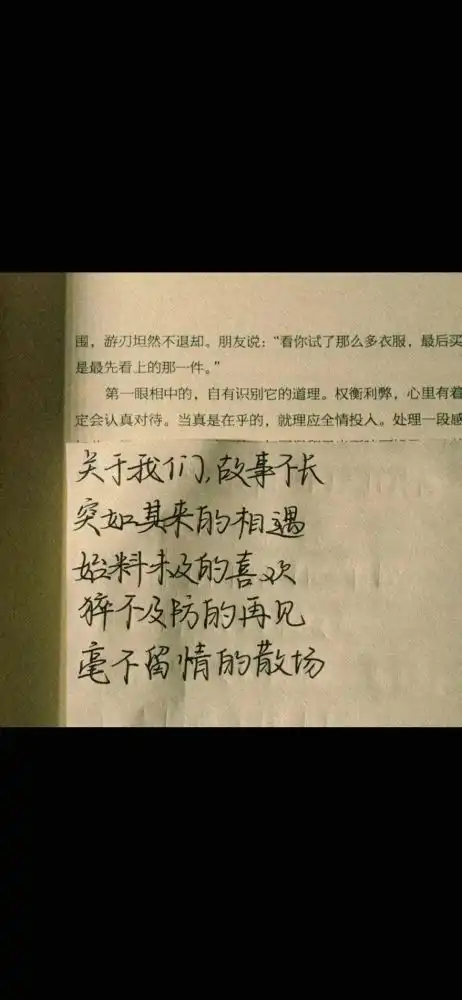 围，游刃坦然不退却。朋友说：“看你试了那么多衣服，最后买
是最先看上的那一件。”
第一眼相中的，自有识别它的道理。权衡利弊，心里有着
定会认真对待。当真是在乎的，就理应全情投入。处理一段感
关于我们，故事不长
突如其来的相遇
始料未及的喜欢
猝不及防的再见
毫不留情的散场